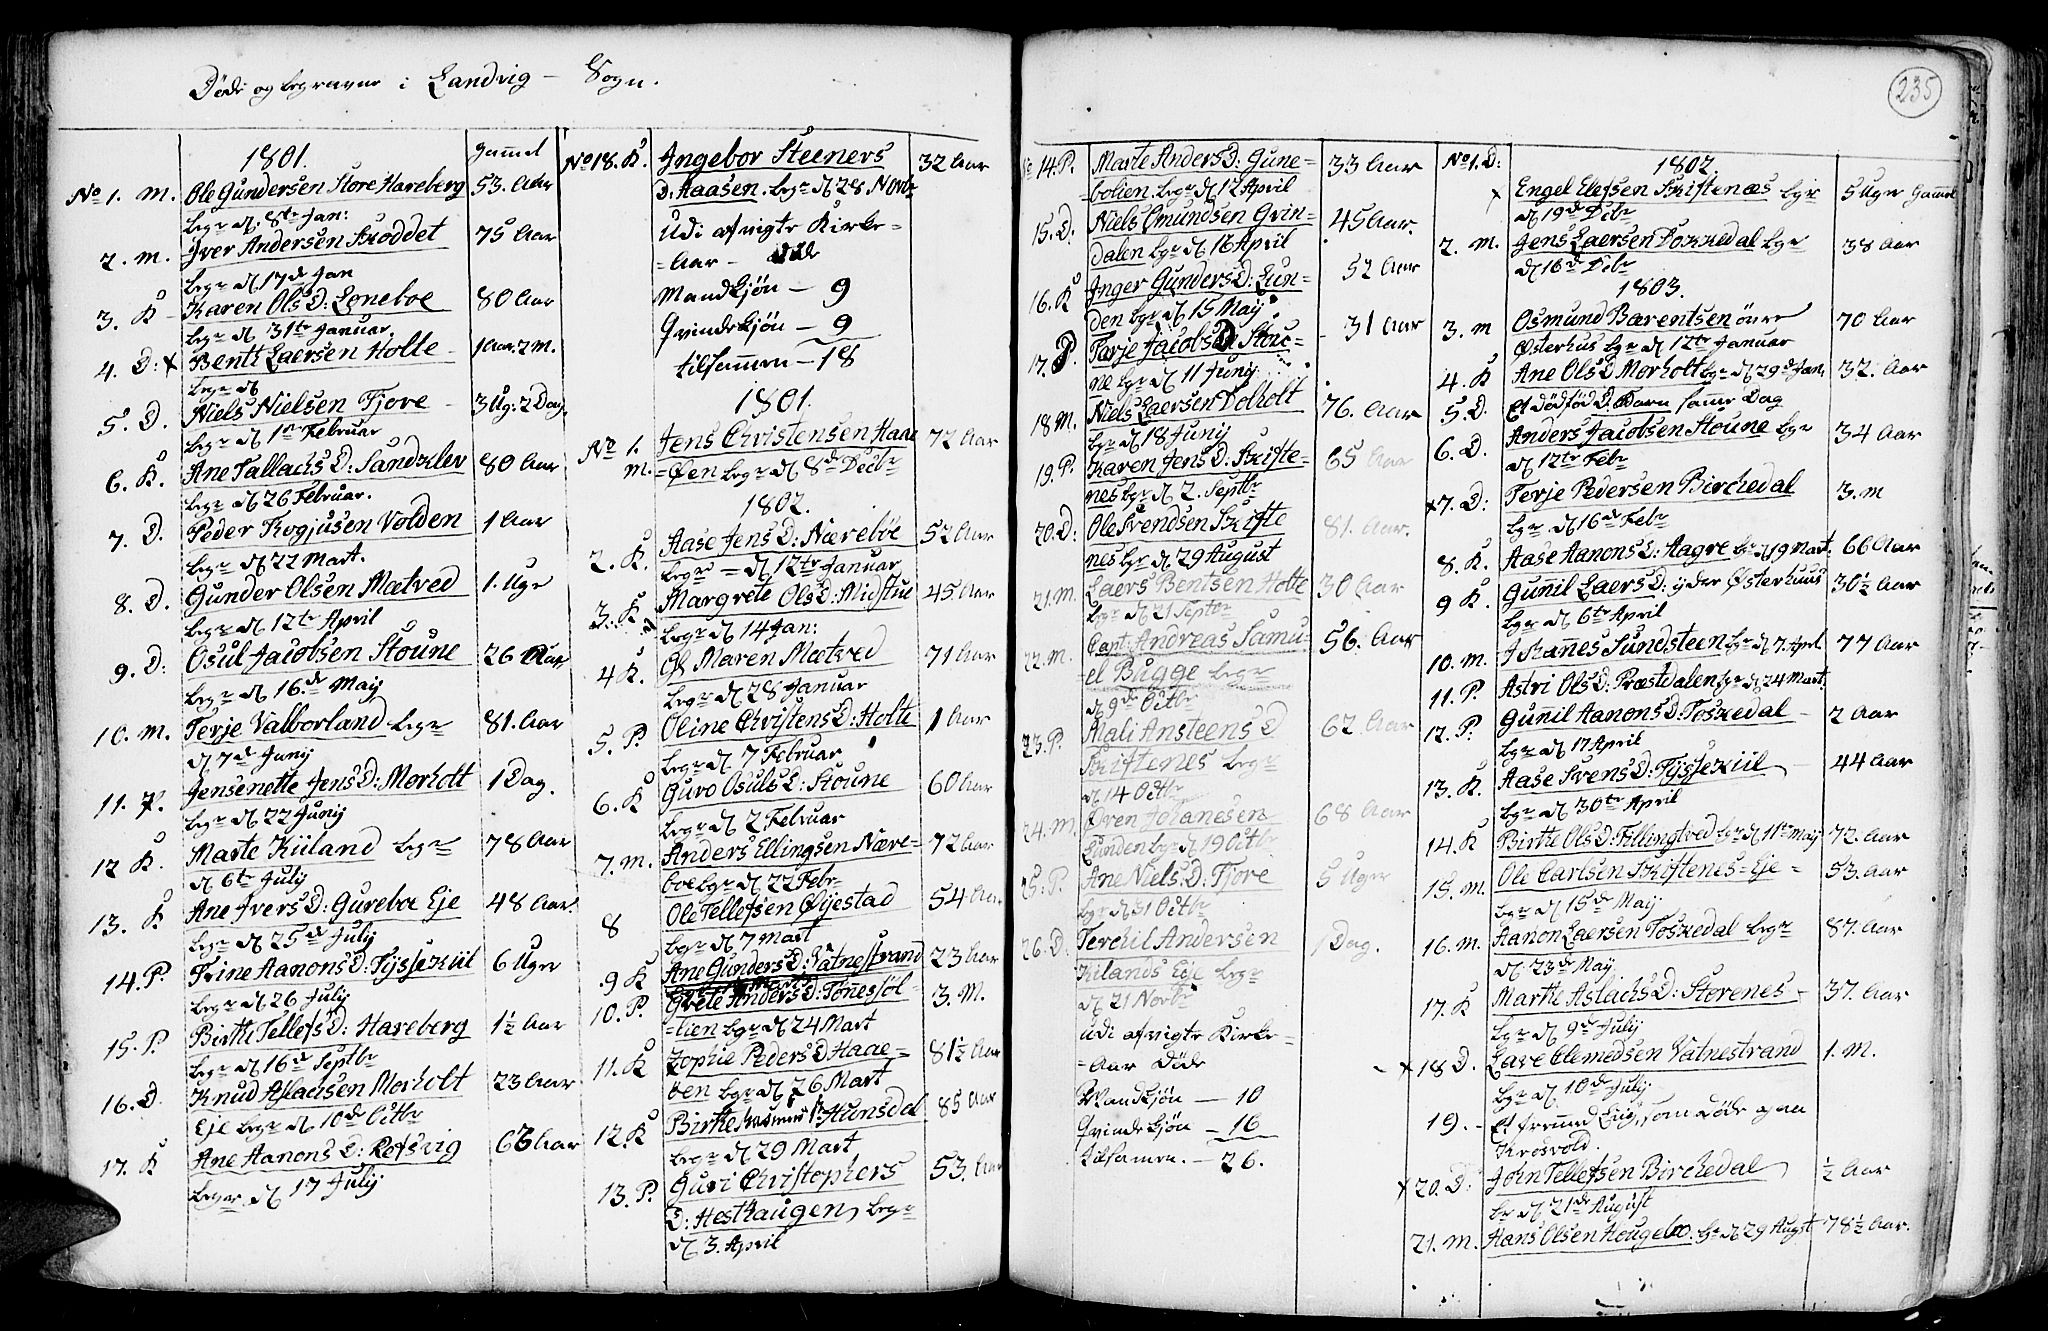 Døde og begravne i Landvig - Sogn.
1801.
gamel
No 1. M. Ole Gundersen Store Hareberg 53. Aar
begr d. 8te Jan:
2. M. Iver Andersen Skoddet 75 Aar
begr d. 17de Jan
3. K Karen OlsD: Loneboe 80 Aar
begr d. 31te Januar.
4. D: x Benth Laersen Holte 1 Aar. 2 m.
begr d.
5. D. Niels Nielsen Fjore 3 Ug: 2 Dag.
begr d. 1ste Februar
6. K. Ane TallachsD: Sandklev 80 Aar
begr d. 26 Februar.
7. D. Peder Rogjusen Volden 1 Aar
begr d. 22 Mart.
8. D. Gunder Olsen Mætved 1. Uge
begr d. 12te April
9. D: Osul Jacobsen Stoune 26 Aar
begr d. 16.de Maij
10. M. Terje Valborland begr 81. Aar
d. 7de Junij
11. P. Jensenette JensD: Morholt 1 Dag.
begr d. 22 Junij
12 K. Marte Kiiland begr 78 Aar
d. 6te Julij
13. K Ane IversD: Gureboe Eje 48 Aar.
begr d. 25de Julij
14. P. Trine AanonsD: Tyssekiil 6 Uger
begr d. 26 Julij
15. P. Birthe TellefsD: Hareberg 1½ Aar
begr d. 16de Septbr
16. D. Knud Aslachsen Morholt 23 Aar
Eje begr d. 10de Octbr
17. K Ane AanonsD: Rofsvig 63 Aar
begr d. 17 Julij
No 18. K. Ingebor Steeners 32 Aar
D: Aaasen. begr d. 28. Novbr
Udi afvigte Kirke=
=Aar - døde
Mandkjøn - 9
Qvindekjøn - 9
tilsammen - 18
1801.
No 1. Jens Christensen Haae 72 Aar
M. =Øen begr d. 8de Decbr
1802.
2. K. Aase JensD: Nærebøe 52 Aar
begr = d. 12te Januar
3. K Margrete OlsD: Midstue 45 Aar
begr d. 14 Jan:
4 K. Gl Maren Mætved 71 Aar
begr d. 28 Januar
5. P. Oline ChristensD: Holte 1 Aar
begr d. 7 Februar
6. K Guro OsulsD: Stoune 60 Aar
begr d. 2 Februar
7. M. Anders Ellingsen Nære= 72 Aar
boe begr d. 22 Febr
8 Ole Tellefsen Øijestad 54 Aar
begr d. 7 Mart
9 K Ane GundersD: Vatnestrand 23 Aar
10. P. Grete AndersD: Tønnesøl- 3. M.
=lien begr d. 24 Mart
11. K Zophie PedersD Haae= 81½ Aar
øen begr d. 26 Mart
12 K Birthe RasmusD: Hunsdal 85 Aar
begr d. 29 Mart
13. P. Guri Christophers 53. Aar
D: Hesthaugen begr
d. 3. April
235
No 14. P. Marte AndersD: Gune= 33 Aar
bolien begr d. 12 April
15. D: Niels Omundsen Grin= 45 Aar.
dalen begr d. 16 April
16. K Inger GundersD: Lun= 52 Aar
den begr d. 15 Maij
17. D. Tarje JacobsD Stou= 31 Aar
ne begr d. 11 Junij
18 M. Niels Laersen Dolholt 76. Aar
begr d. 18 Junij
19. P. Karen JensD: Skifte= 65 Aar
nes begr d. 2. Septbr
20. D: Ole Svendsen Skifte 81. Aar.
nes begr d. 29 August
21. M. Laers Bentsen Holte 30 Aar
begr d. 21 Septbr
22. M. Capt: Andreas Samu= 56. Aar
el Bugge begr
d. 9de Octbr
23. P. Mali AnsteensD 62 Aar
Skiftenes begr
d. 14 Octbr
24. M. Øven Johanesen 68 Aar
Lunden begr d. 19 Octbr
25. P. Ane NielsD: Fjore 5 Uger
begr d. 31 Octbr
26. D. Terchil Andersen 1 Dag.
Kilands Eje begr
d. 21 Novbr
Udi afvigte Kirke=
=Aar Døde
Mandkjøn - 10
Qvindekjøn - 16
tilsamen. - 26.
1802
No 1. D: x Engel Elefsen Skiftenæs begr 5 Uger Gamel
d. 19de Decbr
2. M. Jens Laersen Foskedal begr 38 Aar
d. 16de Decbr
1803.
3. M Osmund Bærentsen øvre 70 Aar
Østerhus begr d. 12te Januar
4. K Ane OlsD Morholt begr d. 29de Jan. 32. Aar
5. D. Et dødfød D. Barn same Dag
6. D. Anders Jacobsen Stoune begr 34 Aar
d. 12te Febr
x 7. D: Terje Pedersen Birchedal 3. m
begr d. 16de Febr
8. K. Aase AanonsD: Aagre begr d. 19 Mart. 66 Aar
9 K. Gunnil LaersD: yder Østerhuus 30½ Aar
begr d. 6te April
10. M. Johannes Sundsteen begr d. 7. April 77 Aar
11. P. Astri OlsD: Præstdalen begr d. 24 Mart.
12. P. Gunnil AanonsD: Foskedal 2 Aar
begr d. 17 April
13. K. Aase SvensD: Tyssekiil 44 Aar
begr d. 30te April
14. K Birthe OlsD: Fillingtved begr d. 11te Maij 72. Aar
15. M. Ole Carlsen Skiftenes=Eje = 53. Aar
begr d. 15de Maij
16. M. Aanon Laersen Foskedal begr 87. Aar
d. 23de Maij
17. K Marthe AslachsD: Storenes 37. Aar
begr d. 9de Julij
x 18 D. Lare Clemedsen Vatnestrand 1. M.
begr d. 10de Julij
19. - Et fremmed Liig, som døde opaa
Krosvold.
x 20. D: John Tellefsen Birchedal ½ Aar
br d. 21de August
21. M. Hans Olsen Hougebo. begr d. 29 Augst 78½ Aar.